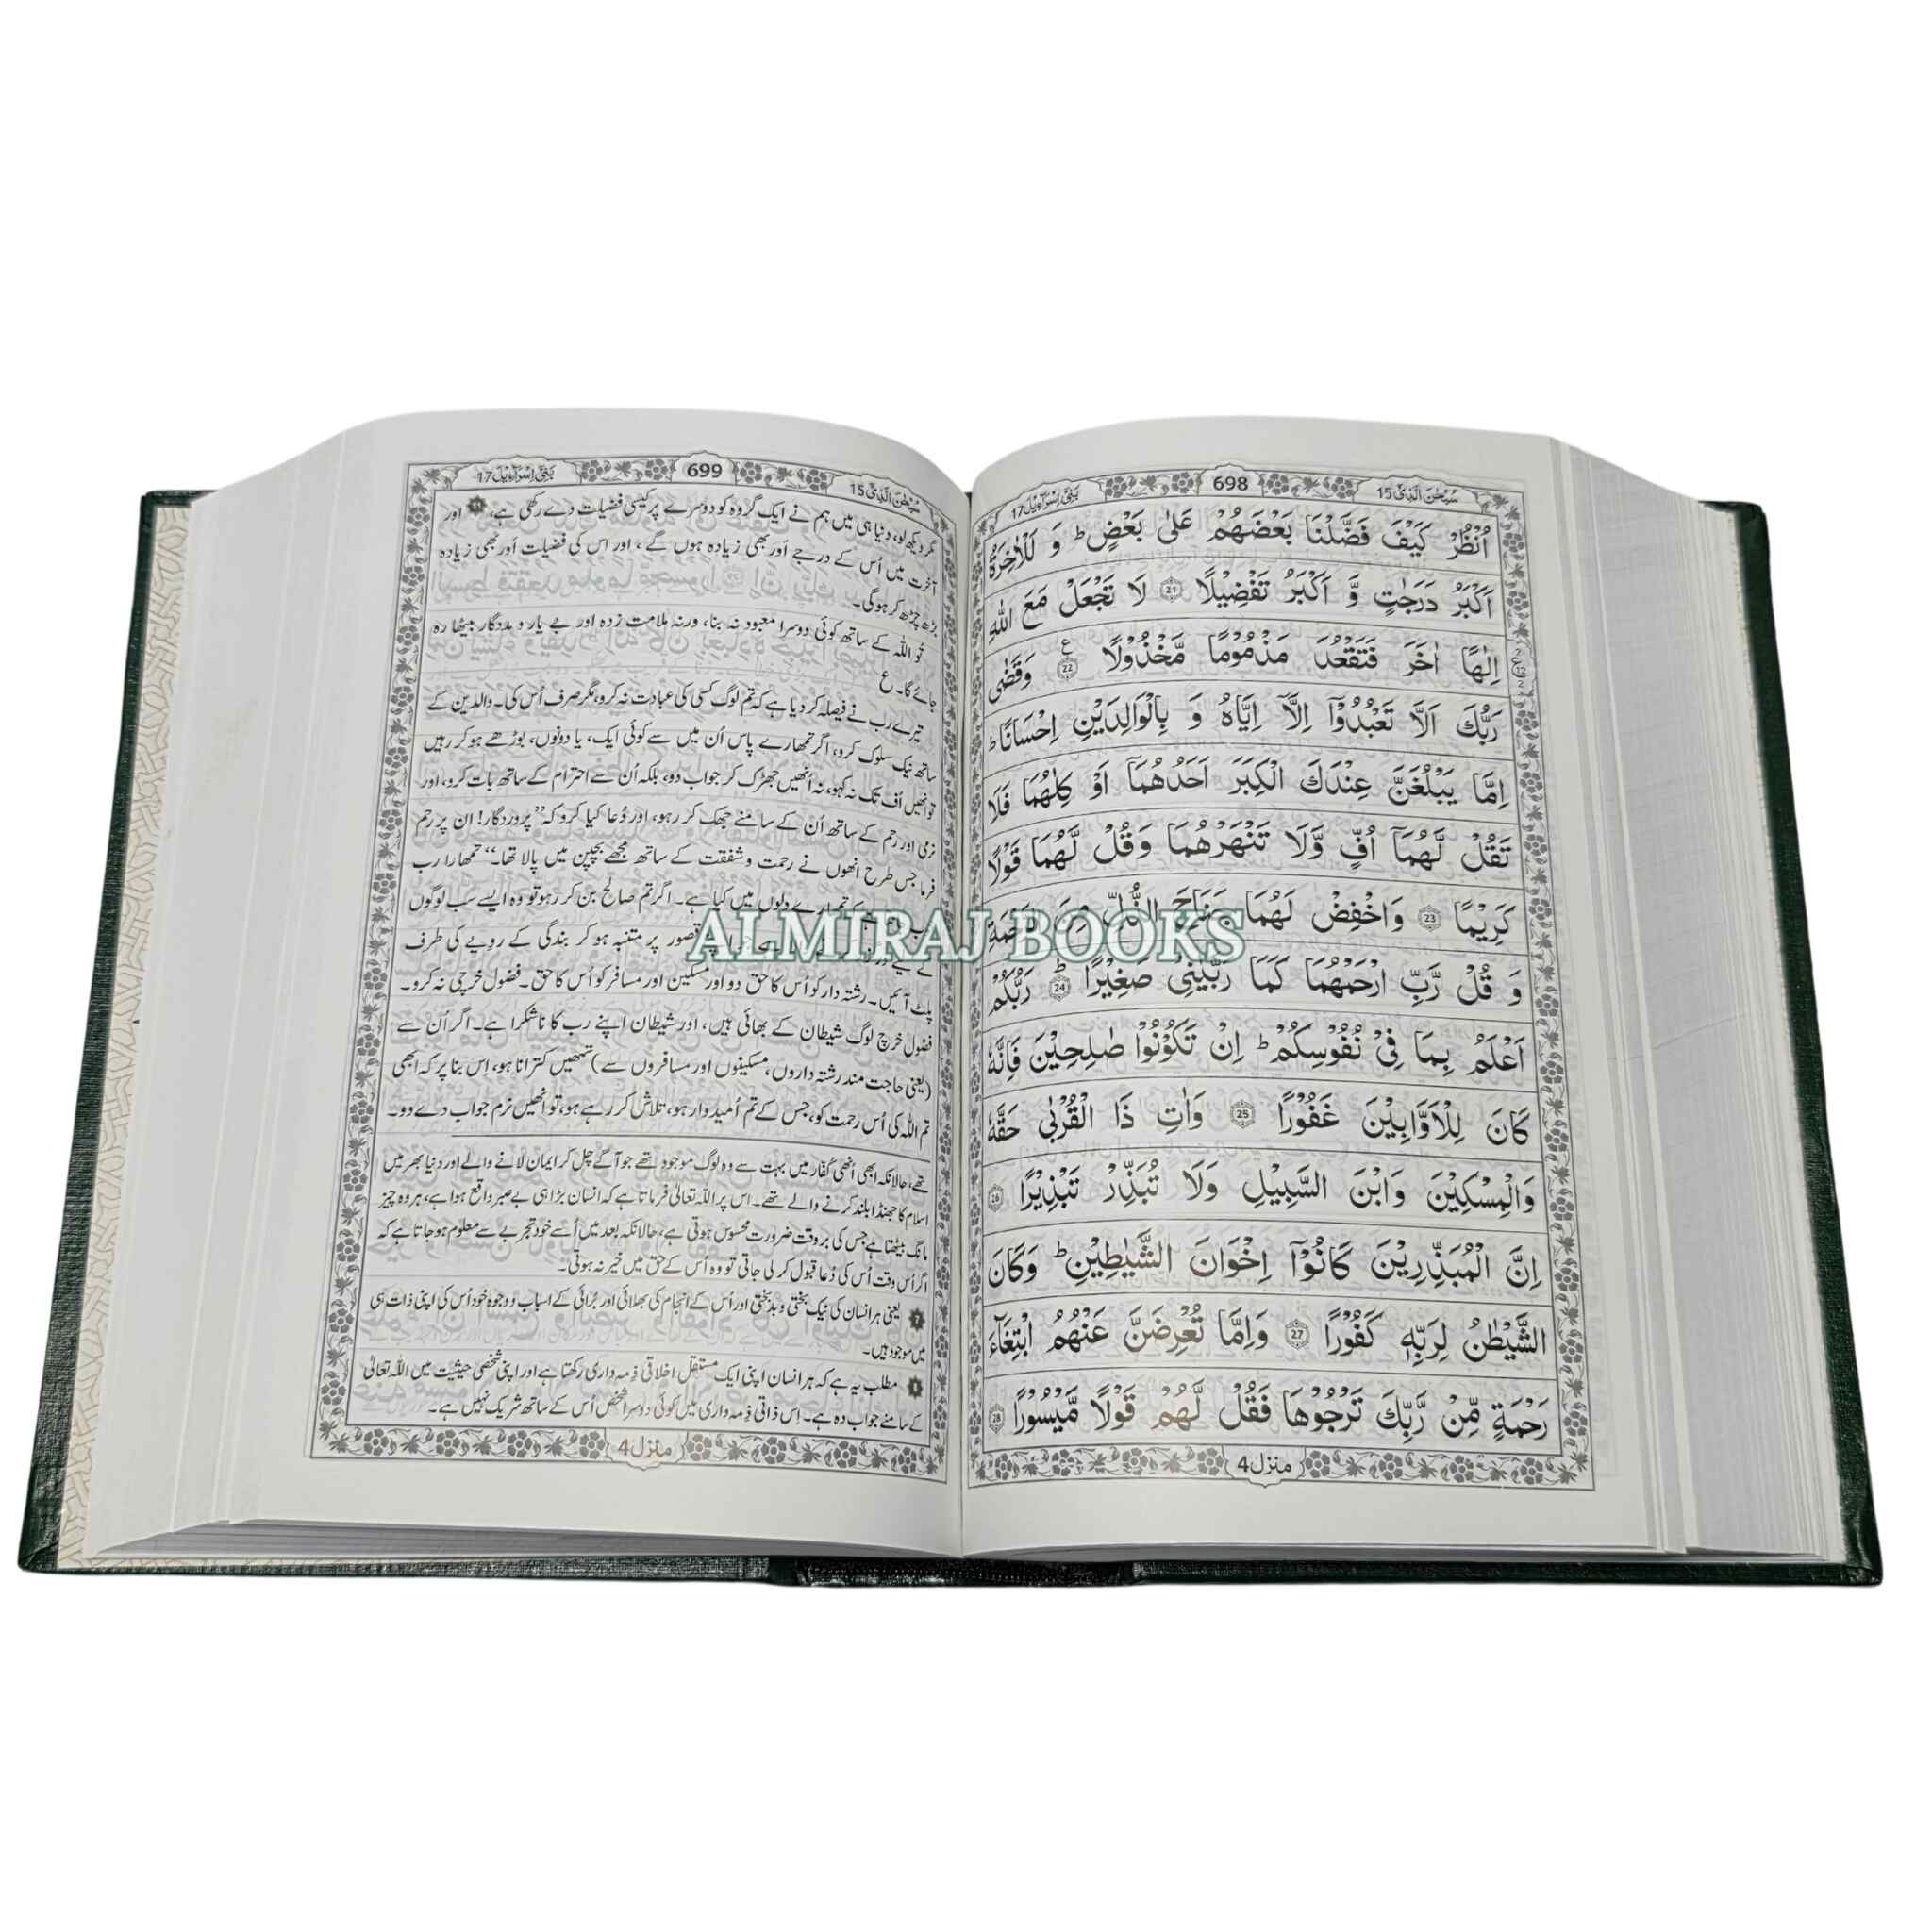 سُبْحٰنَ الَّذِیْۤ 15
698
بَنِیْۤ اِسْرَآءِیْل 17
اُنْظُرْ كَیْفَ فَضَّلْنَا بَعْضَهُمْ عَلٰى بَعْضٍ ؕ وَ لَلْاٰخِرَةُ
اَكْبَرُ دَرَجٰتٍ وَّ اَكْبَرُ تَفْضِیْلًا 21 لَا تَجْعَلْ مَعَ اللّٰهِ
اِلٰهًا اٰخَرَ فَتَقْعُدَ مَذْمُوْمًا مَّخْذُوْلًا 22 ع وَقَضٰى
رَبُّكَ اَلَّا تَعْبُدُوْۤا اِلَّاۤ اِیَّاهُ وَ بِالْوَالِدَیْنِ اِحْسَانًا ؕ
اِمَّا یَبْلُغَنَّ عِنْدَكَ الْكِبَرَ اَحَدُهُمَاۤ اَوْ كِلٰهُمَا فَلَا
تَقُلْ لَّهُمَاۤ اُفٍّ وَّلَا تَنْهَرْهُمَا وَقُلْ لَّهُمَا قَوْلًا
كَرِیْمًا 23 وَاخْفِضْ لَهُمَا جَنَاحَ الذُّلِّ مِنَ الرَّحْمَةِ
وَ قُلْ رَّبِّ ارْحَمْهُمَا كَمَا رَبَّیٰنِیْ صَغِیْرًا ؕ 24 رَبُّكُمْ
اَعْلَمُ بِمَا فِیْ نُفُوْسِكُمْ ؕ اِنْ تَكُوْنُوْا صٰلِحِیْنَ فَاِنَّهٗ
كَانَ لِلْاَوَّابِیْنَ غَفُوْرًا 25 وَاٰتِ ذَا الْقُرْبٰى حَقَّهٗ
وَالْمِسْكِیْنَ وَابْنَ السَّبِیْلِ وَلَا تُبَذِّرْ تَبْذِیْرًا 26
اِنَّ الْمُبَذِّرِیْنَ كَانُوْۤا اِخْوَانَ الشَّیٰطِیْنِ ؕ وَكَانَ
الشَّیْطٰنُ لِرَبِّهٖ كَفُوْرًا 27 وَاِمَّا تُعْرِضَنَّ عَنْهُمُ ابْتِغَآءَ
رَحْمَةٍ مِّنْ رَّبِّكَ تَرْجُوْهَا فَقُلْ لَّهُمْ قَوْلًا مَّیْسُوْرًا 28
منزل 4
سُبْحٰنَ الَّذِیْۤ 15
699
بَنِیْۤ اِسْرَآءِیْل 17
مگر دیکھ لو، دنیا ہی میں ہم نے ایک گروہ کو دوسرے پر کیسی فضیلت دے رکھی ہے، اور
آخرت میں اُس کے درجے اَور بھی زیادہ ہوں گے، اور اس کی فضیلت اَور بھی زیادہ
بڑھ چڑھ کر ہوگی۔
تُو اللہ کے ساتھ کوئی دوسرا معبود نہ بنا، ورنہ ملامت زدہ اور بے یار و مددگار بیٹھا رہ
جائے گا۔ ع
تیرے رب نے فیصلہ کر دیا ہے کہ تم لوگ کسی کی عبادت نہ کرو، مگر صرف اُس کی۔ والدین کے
ساتھ نیک سلوک کرو، اگر تمھارے پاس اُن میں سے کوئی ایک، یا دونوں، بوڑھے ہو کر رہیں
تو اُنھیں اُف تک نہ کہو، نہ اُنھیں جھڑک کر جواب دو، بلکہ اُن سے احترام کے ساتھ بات کرو، اور
نرمی اور رحم کے ساتھ اُن کے سامنے جھک کر رہو، اور دُعا کیا کرو کہ ”پروردگار! ان پر رحم
فرما جس طرح اُنھوں نے رحمت و شفقت کے ساتھ مجھے بچپن میں پالا تھا۔“ تمھارا رب
تمھارے دلوں میں کیا ہے۔ اگر تم صالح بن کر رہو تو وہ ایسے سب لوگوں
ALMIRAJ BOOKS
قصور پر متنبہ ہو کر بندگی کے رویے کی طرف
پلٹ آئیں۔ رشتہ دار کو اُس کا حق دو اور مسکین اور مسافر کو اُس کا حق۔ فضول خرچی نہ کرو۔
فضول خرچ لوگ شیطان کے بھائی ہیں، اور شیطان اپنے رب کا ناشکرا ہے۔ اگر اُن سے
(یعنی حاجت مند رشتہ داروں، مسکینوں اور مسافروں سے) تمھیں کترانا ہو، اِس بنا پر کہ ابھی
تم اللہ کی اُس رحمت کو، جس کے تم اُمیدوار ہو، تلاش کر رہے ہو، تو اُنھیں نرم جواب دے دو۔
تھے، حالانکہ ابھی اُنھی کُفار میں بہت سے وہ لوگ موجود تھے جو آگے چل کر ایمان لانے والے اور دنیا بھر میں
اسلام کا جھنڈا بلند کرنے والے تھے۔ اس پر اللہ تعالیٰ فرماتا ہے کہ انسان بڑا ہی بے صبر واقع ہوا ہے، ہر وہ چیز
مانگ بیٹھتا ہے جس کی بر وقت ضرورت محسوس ہوتی ہے، حالانکہ بعد میں اُسے خود تجربے سے معلوم ہو جاتا ہے کہ
اگر اُس وقت اُس کی دُعا قبول کر لی جاتی تو وہ اُس کے حق میں خیر نہ ہوتی۔
یعنی ہر انسان کی نیک بختی و بدبختی اور اُس کے انجام کی بھلائی اور بُرائی کے اسباب و وجوہ خود اُس کی اپنی ذات ہی
میں موجود ہیں۔
مطلب یہ ہے کہ ہر انسان اپنی ایک مستقل اخلاقی ذِمہ داری رکھتا ہے اور اپنی شخصی حیثیت میں اللہ تعالیٰ
کے سامنے جواب دہ ہے۔ اِس ذاتی ذِمہ داری میں کوئی دوسرا شخص اُس کے ساتھ شریک نہیں ہے۔
منزل 4